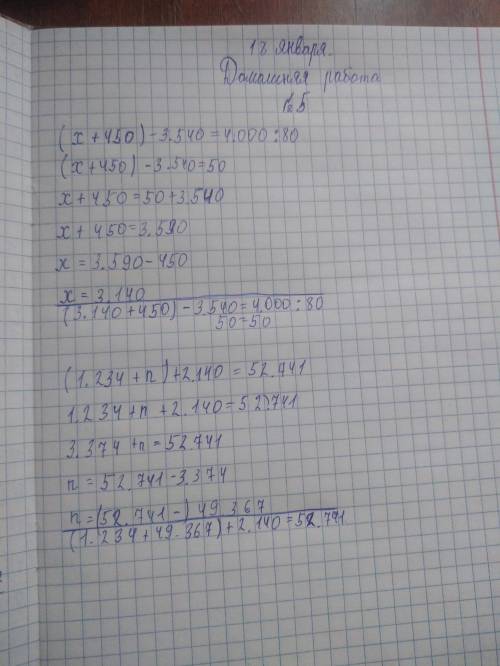 18 января.
Домашняя работа
№5
(x + 450) - 3.540 = 4.000 : 80
(x + 450) - 3.540 = 50
x + 450 = 50 + 3.540
x + 450 = 3.590
x = 3.590 - 450
x = 3.140
(3.140 + 450) - 3.540 = 4.000 : 80
50 = 50
(1.234 + n) + 2.140 = 52.741
1.234 + n + 2.140 = 52.741
3.374 + n = 52.741
n = 52.741 - 3.374
n = (52.741 -) 49.367
(1.234 + 49.367) + 2.140 = 52.741